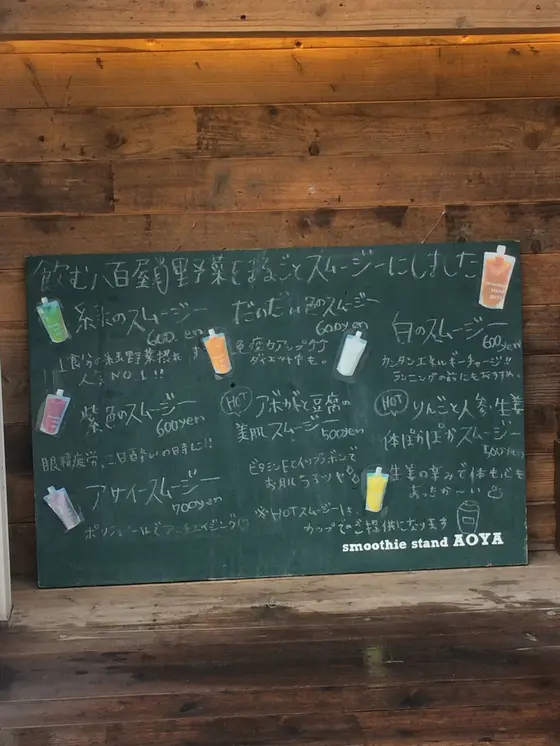 飲む八百屋 野菜をまるごとスムージーにしました
緑のスムージー
600 yen
1食分の緑野菜摂れ
人気NO1!!
だいだい色のスムージー
600yen
免疫力アップ
ダイエットも。
白のスムージー
600yen
カンタンエネルギーチャージ!!
ランニングの前にもおすすめ
紫色のスムージー
600yen
眼精疲労、二日酔いの日に!!
HOT アボカドと豆腐の
美肌スムージー
500yen
ビタミンEとイソフラボンで
お肌うるツヤ
HOT りんごと人参・生姜
体ぽかぽかスムージー
500yen
生姜の辛みで体も心も
あったか〜い
アサイースムージー
700yen
ポリフェノールでアンチエイジング
※HOTスムージーは、
カップでのご提供になります
smoothie stand AOYA